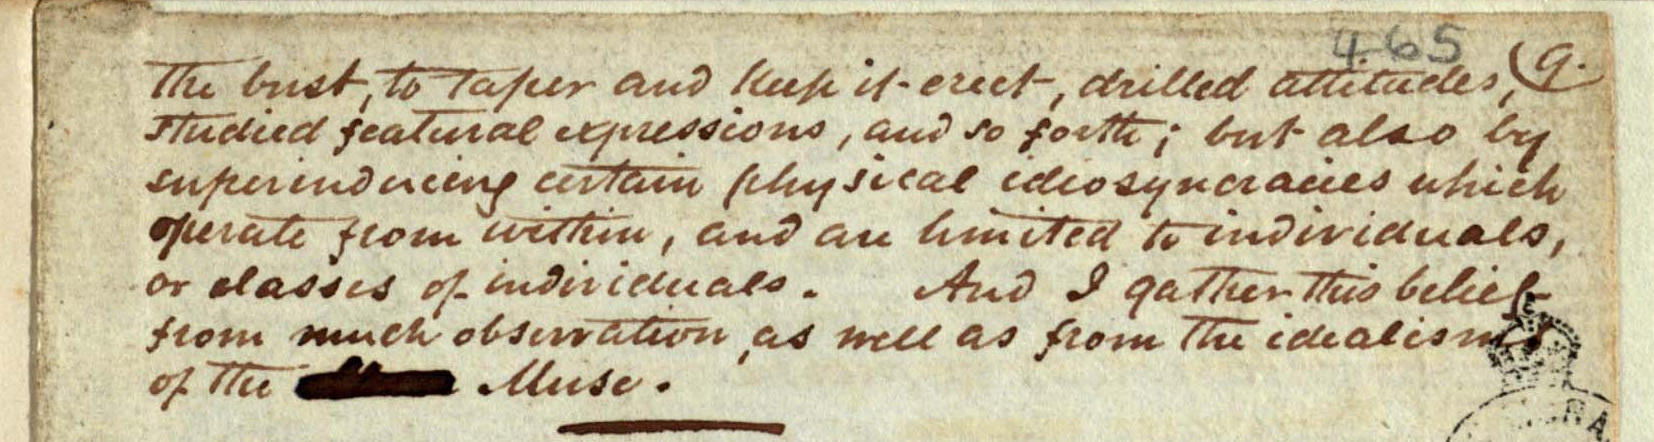 465 (9.
the bust, to taper and keep it erect, drilled attitudes,
studied featural expressions, and so forth; but also by
superinducing certain physical idiosyncracies which
operate from within, and are limited to individuals,
or classes of individuals. And I gather this belief
from much observation, as well as from the idealisms
of the Muse.